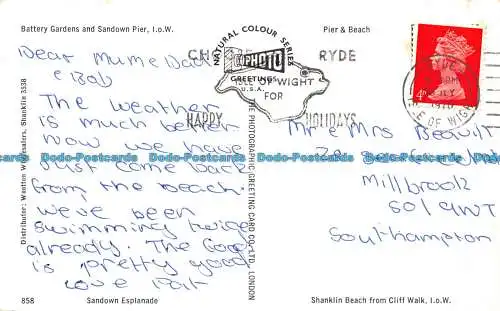 Battery Gardens and Sandown Pier, I.o.W.
Pier & Beach
Dear Mum Dad
& Bob
The weather
is much better
now we have
just come back
from the beach.
we've been
swimming twice
already. The food
is pretty good
love Pat
Distributor: Wootton Wholesalers, Shanklin 3538
NATURAL COLOUR SERIES
PHOTO
GREETINGS
U.S.A.
THE PHOTOGRAPHIC GREETING CARD CO. LTD., LONDON
CHOOSE RYDE
ISLE OF WIGHT
FOR
HAPPY HOLIDAYS
RYDE
JLY
1970
ISLE OF WIGHT
4P
Mr & Mrs
Millbrook
SO1
Southampton
Dodo-Postcards Dodo-Postcards Dodo-Postcards Dodo-Postcards Dodo-Postcards
858
Sandown Esplanade
Shanklin Beach from Cliff Walk, I.o.W.